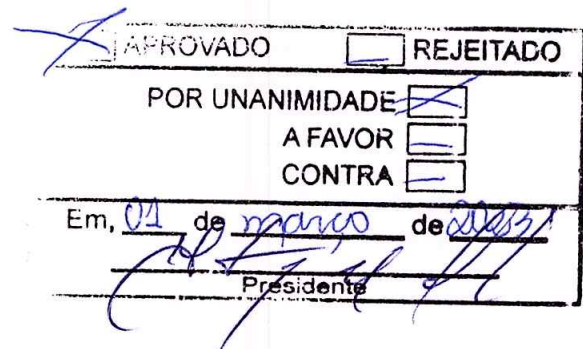 APROVADO REJEITADO
POR UNANIMIDADE
A FAVOR
CONTRA
Em, 01 de março de 2023
Presidente